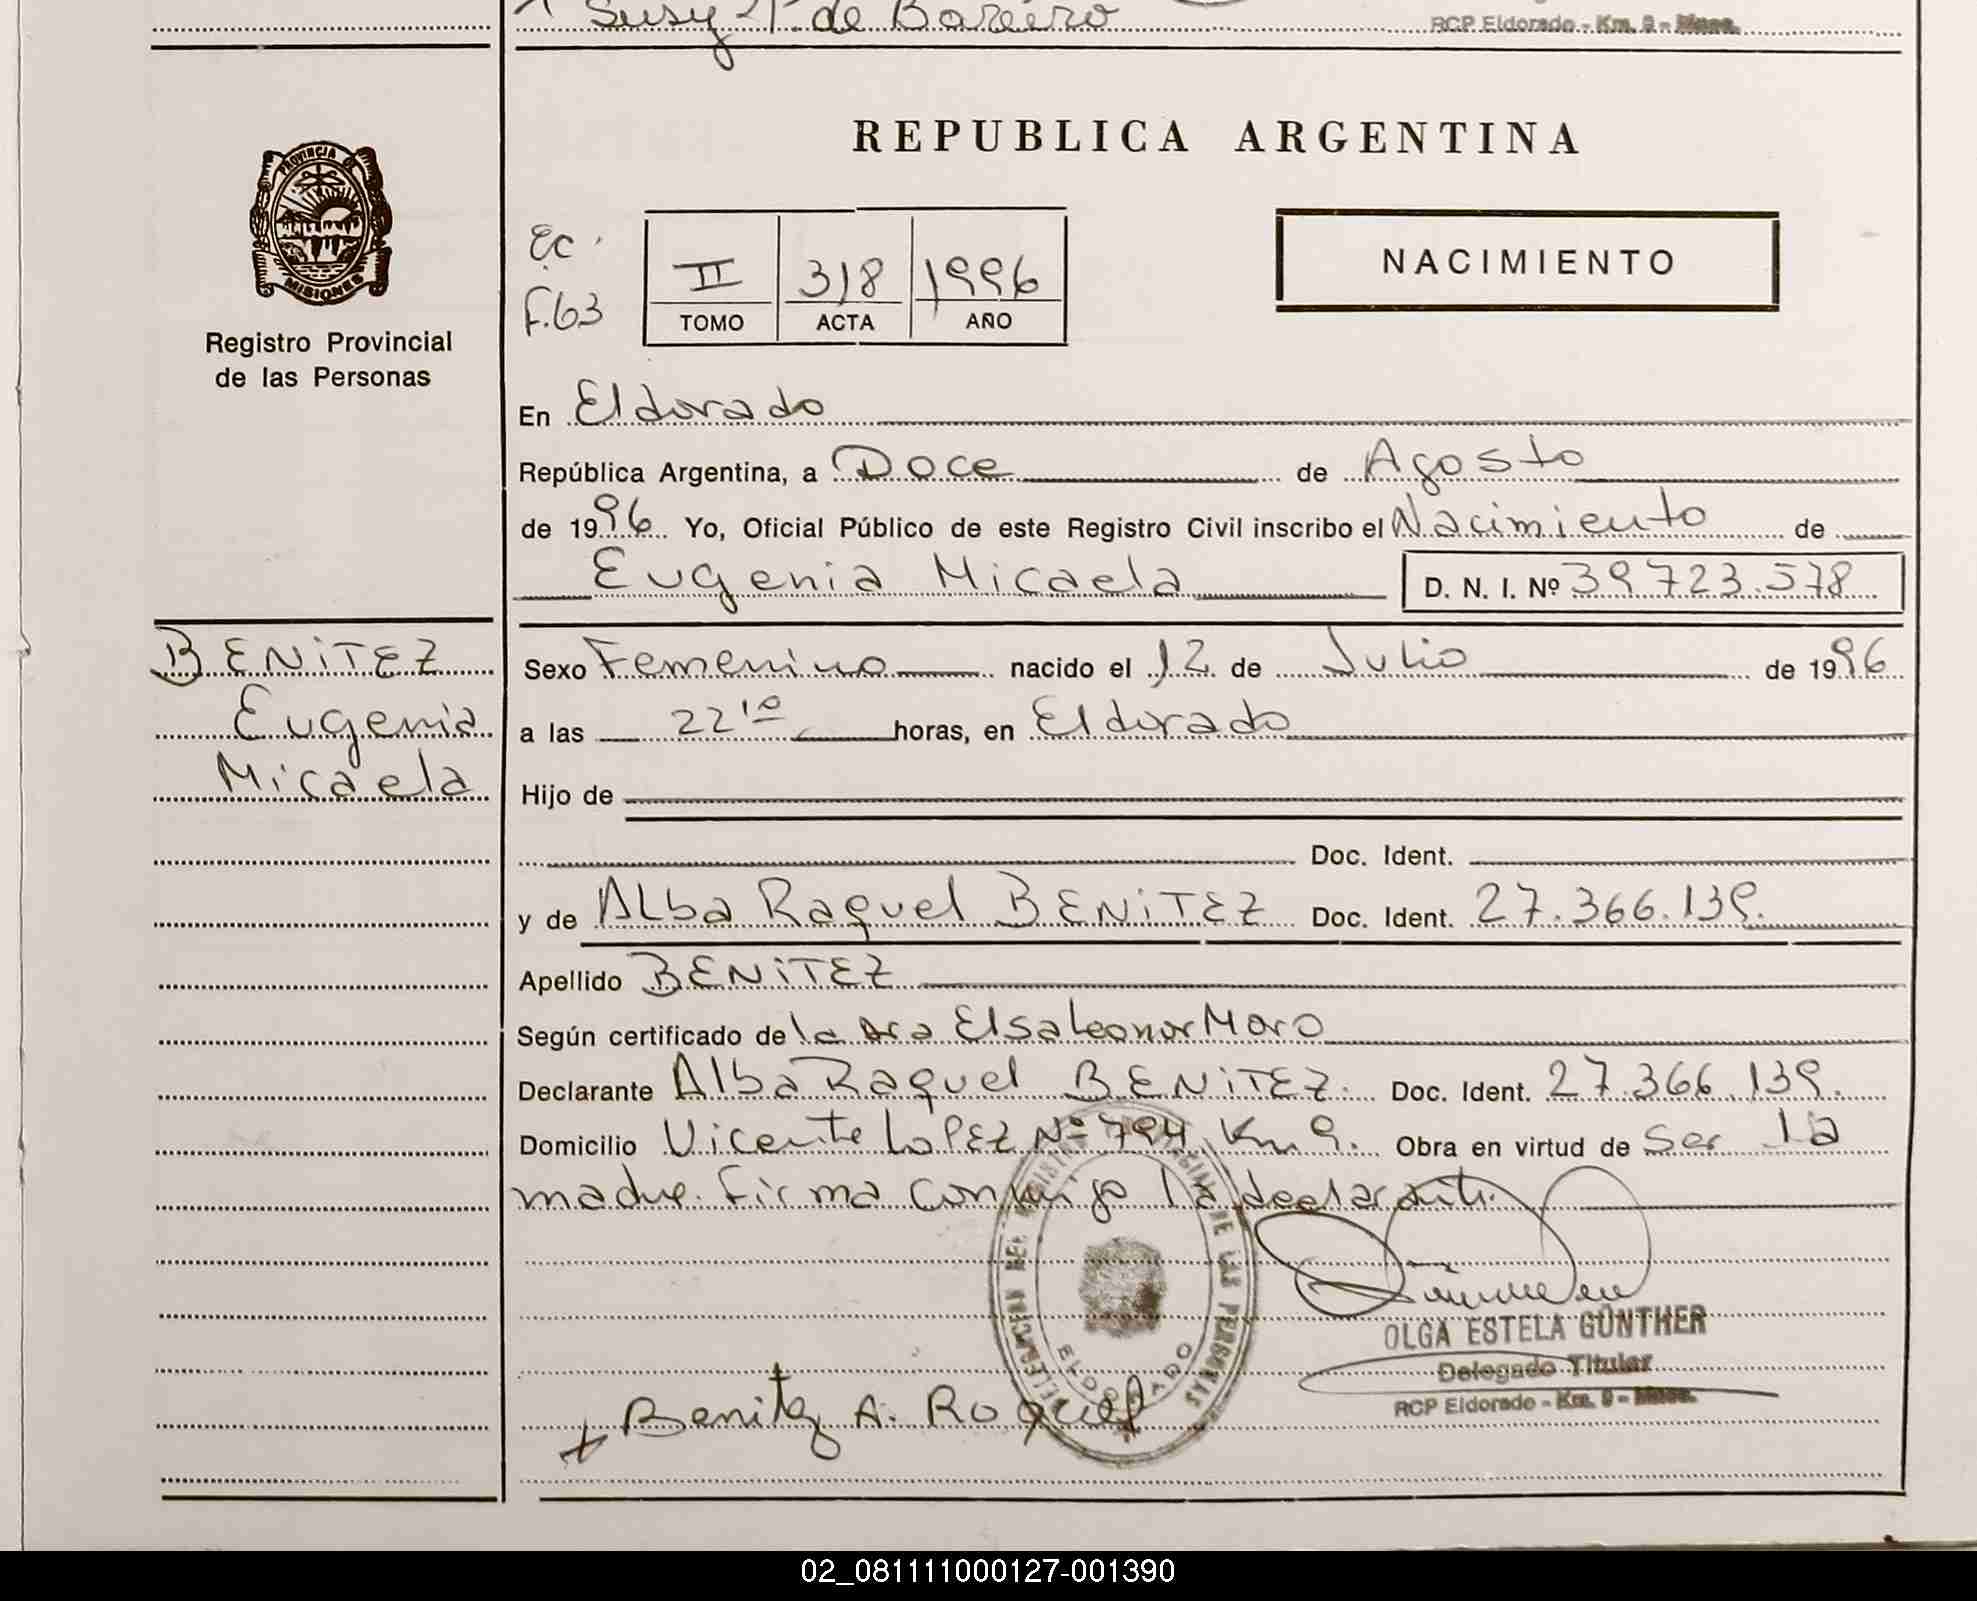 Susy T. de Bareiro
RCP Eldorado - Km. 9 - Mnes.
REPUBLICA ARGENTINA
PROVINCIA DE
MISIONES
Registro Provincial
de las Personas
EC.
F.63
II 318 1996
TOMO ACTA AÑO
NACIMIENTO
En Eldorado
República Argentina, a Doce de Agosto
de 1996 Yo, Oficial Público de este Registro Civil inscribo el Nacimiento de
Eugenia Micaela D. N. I. Nº 39.723.578
BENITEZ
Eugenia
Micaela
Sexo Femenino nacido el 12 de Julio de 1996
a las 22 10 horas, en Eldorado
Hijo de
Doc. Ident.
y de ALba Raquel BENITEZ Doc. Ident. 27.366.139.
Apellido BENITEZ
Según certificado de la Dra Elsa Leonor Moro
Declarante Alba Raquel BENITEZ. Doc. Ident. 27.366.139.
Domicilio Vicente LoPEZ Nº 794 Km 9. Obra en virtud de Ser la
madre. Firma conmigo la declarante.
OLGA ESTELA GÜNTHER
Delegado Titular
RCP Eldorado - Km. 9 - Mnes.
DE LAS PERSONAS
ELDORADO
Benitez A. Raquel
02_081111000127-001390